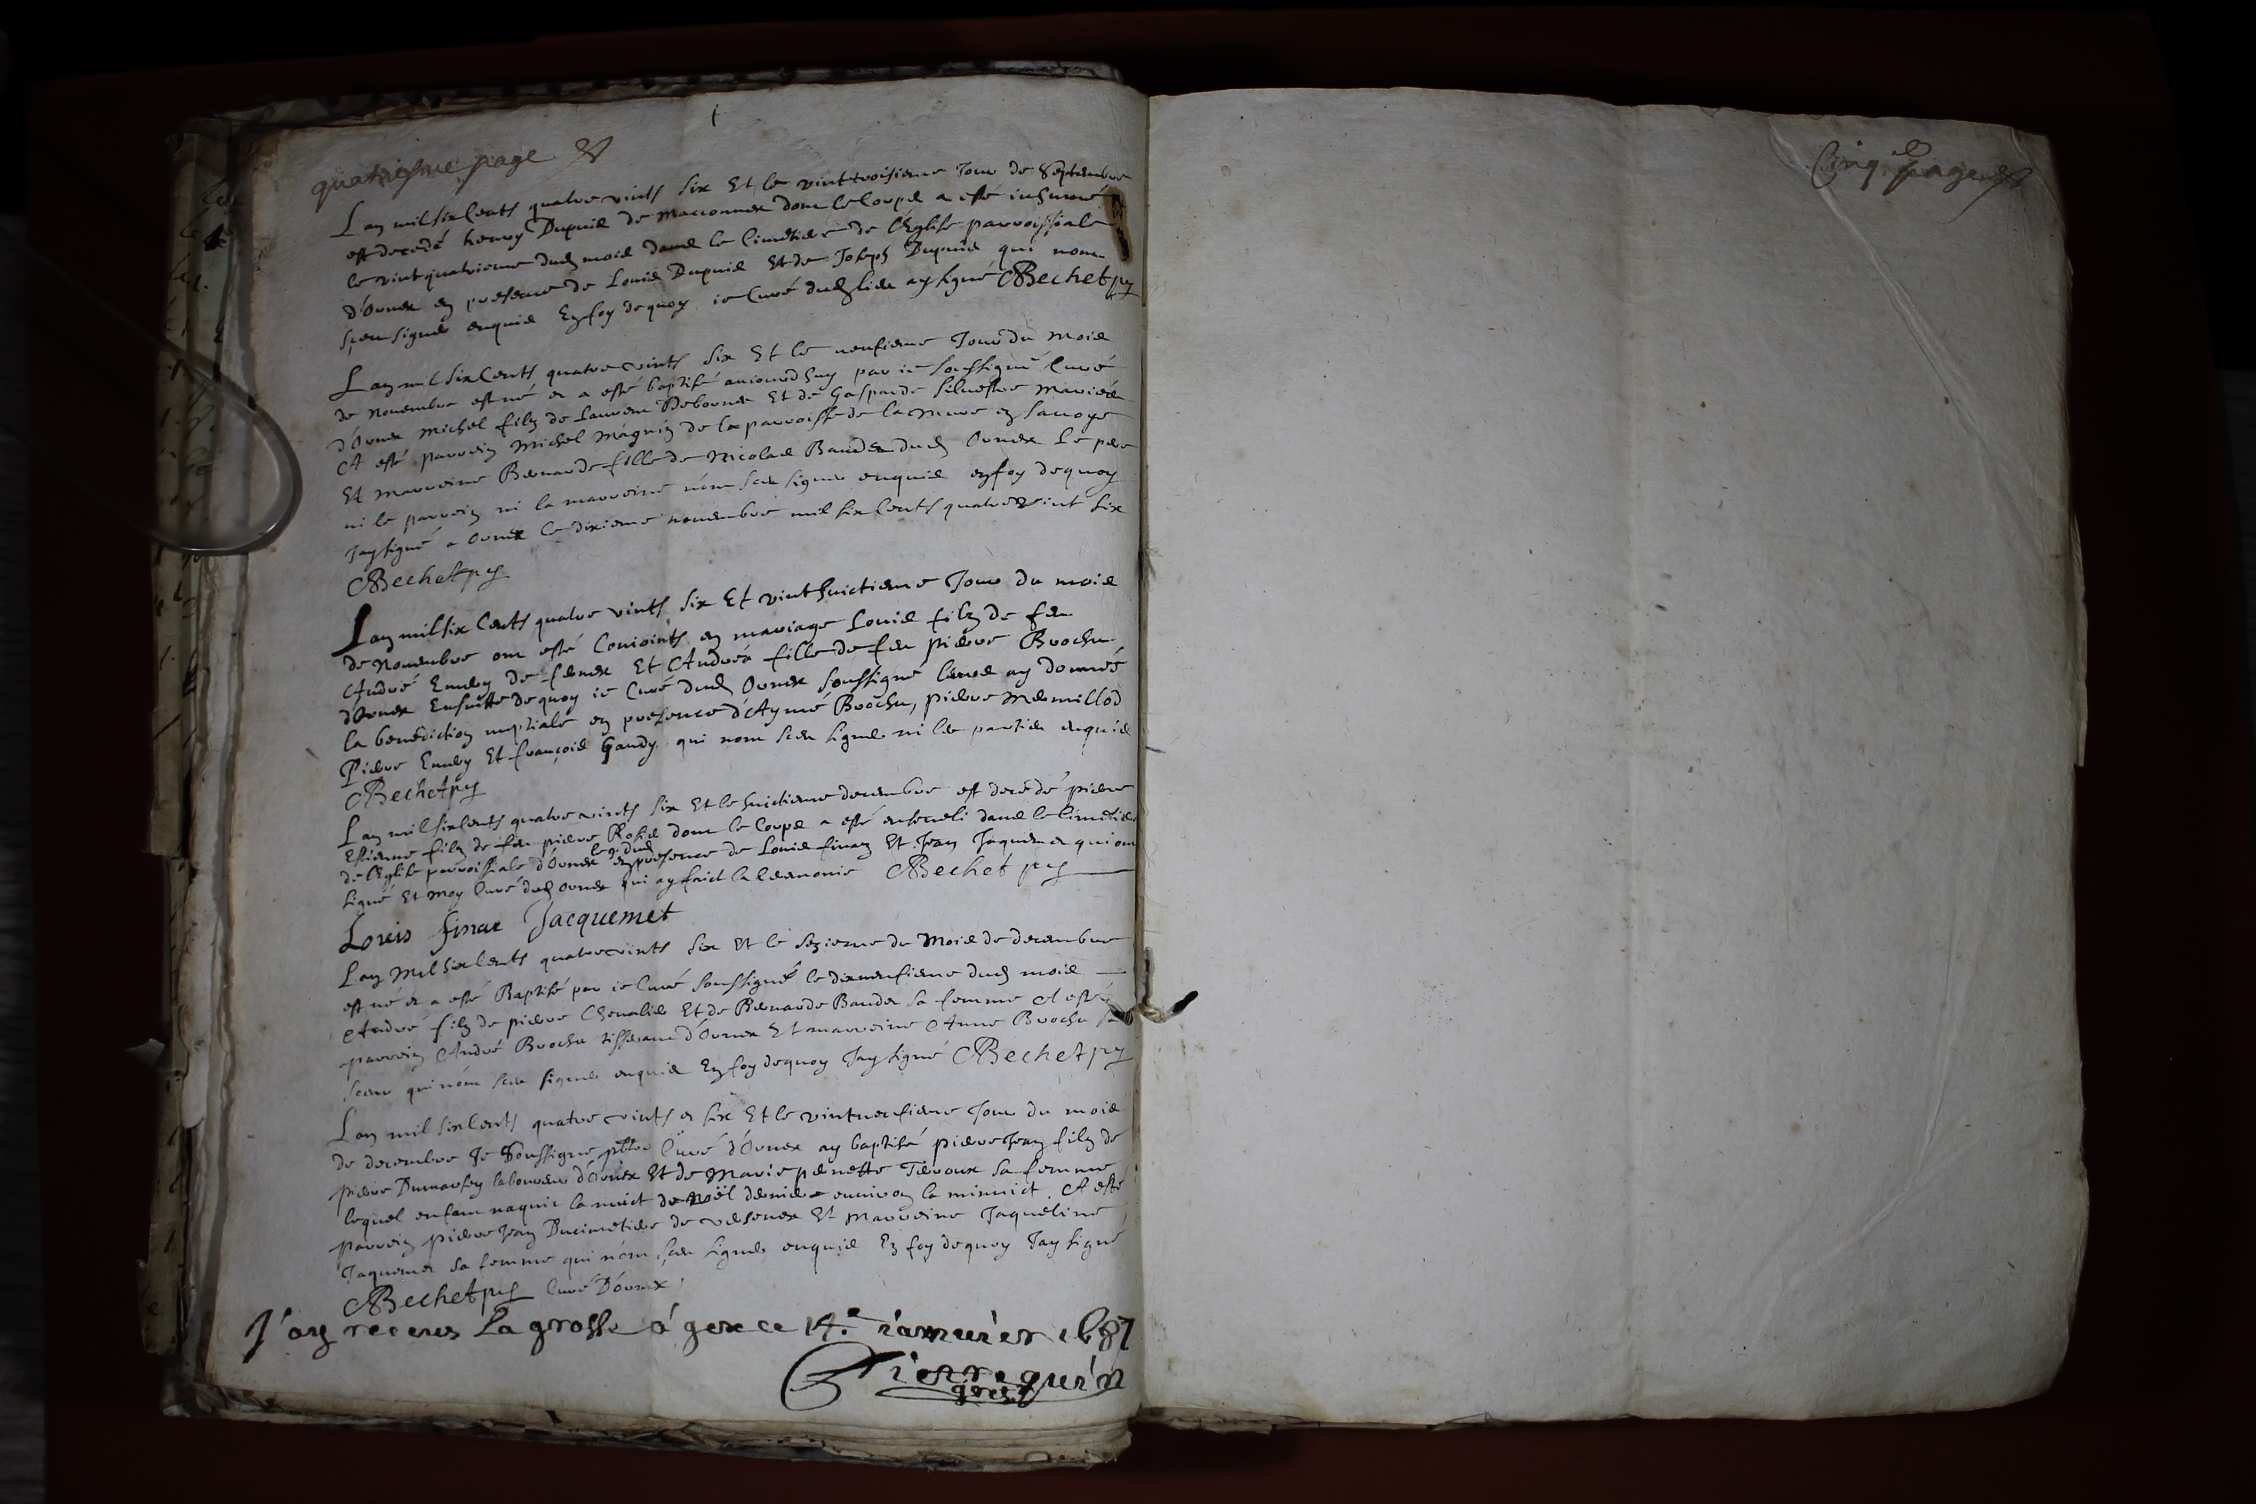 quatriesme page
Lan mil six Cents quatre vints six Et le vint troisieme Jour de Septembre
est decedé henry Dupuid de Maconnex dont le Corps a esté inhumé
le vint quatrieme dud moid dand le Cimetiere de l'Eglise parroissiale
d'Ornex en presence de Louid Dupuid Et de Joseph Dupuid qui nont
sceu signer enquid En foy de quoy ie Curé dud lieu ay signé CBechet
Lan mil six Cents quatre vints six Et le neufieme Jour du Moid
de Novembre est né et a esté baptisé auiourdhuy par ie soussigné Curé
d'Ornex Michel filz de Laurent Debornex Et de Gasparde Silvestre Mariéd
A esté parrein Michel Magnin de la parroisse de la Mure en Savoye
Et marreine Bernarde fille de Nicolad Baudet dud Ornex Le pere
ni le parrein ni la marreine n'ont sceu signer enquid en foy de quoy
Jay signé a Ornex Ce dixieme novembre mil six Cents quatre vint six
CBechet
Lan mil six Cents quatre vints six Et vint huictieme Jour du moid
de Novembre ont esté Conioints en mariage Louid filz de feu
André Emery de fernex Et Andréa fille de feu pierre Brochu
d'Ornex Ensuitte de quoy ie Curé dud Ornex soussigné leurd ay donné
la benediction nuptiale en presence d'Aymé Brochu, pierre Mermillod
Pierre Emery Et françoid Gaudy qui nont sceu signer ni led partied enquid
CBechet
Lan mil six Cents quatre vints six Et le huictieme decembre est decedé pierre
Estienne filz de feu pierre Rosid dont le Corps a esté enseveli dand le Cimetiere
de l'Eglise parroissiale d'Ornex le 9. dud en presence de Louid finaz Et Jean Jaquemet qui ont
signé Et Moy Curé dud Ornex qui ay faict la Ceremonie CBechet
Louis finaz Jacquemet
Lan Mil six Cents quatre vints six Et le sezieme du Moid de decembre
est né et a esté Baptisé par ie Curé soussigné le dixneufieme dud moid
André filz de pierre Chevalid Et de Bernarde Baudet sa femme A esté
parrein André Brochu tisserant d'Ornex Et marreine Anne Brochu sa
soeur qui n'ont sceu signer enquid En foy de quoy Jay signé CBechet
Lan mil six Cents quatre vints et six Et le vint neufieme Jour du moid
de decembre Je Soussigné pbre Curé d'Ornex ay baptisé pierre Jean filz de
pierre Dumarsey laboureur d'Ornex Et de Marie pernette Tiervoux sa femme
lequel enfant naquit la nuict de Noël dernier enuiron la minuict. A esté
parrein pierre Jean Ducimetiere de versonex Et Marreine Jaqueline
Jaquemet sa femme qui n'ont sceu signer enquid En foy de quoy Jay signé
CBechet Curé D'ornex
J'ay receues La grosse á gex ce 14.e ianuier 1687
Pierrequin
Cinq. page